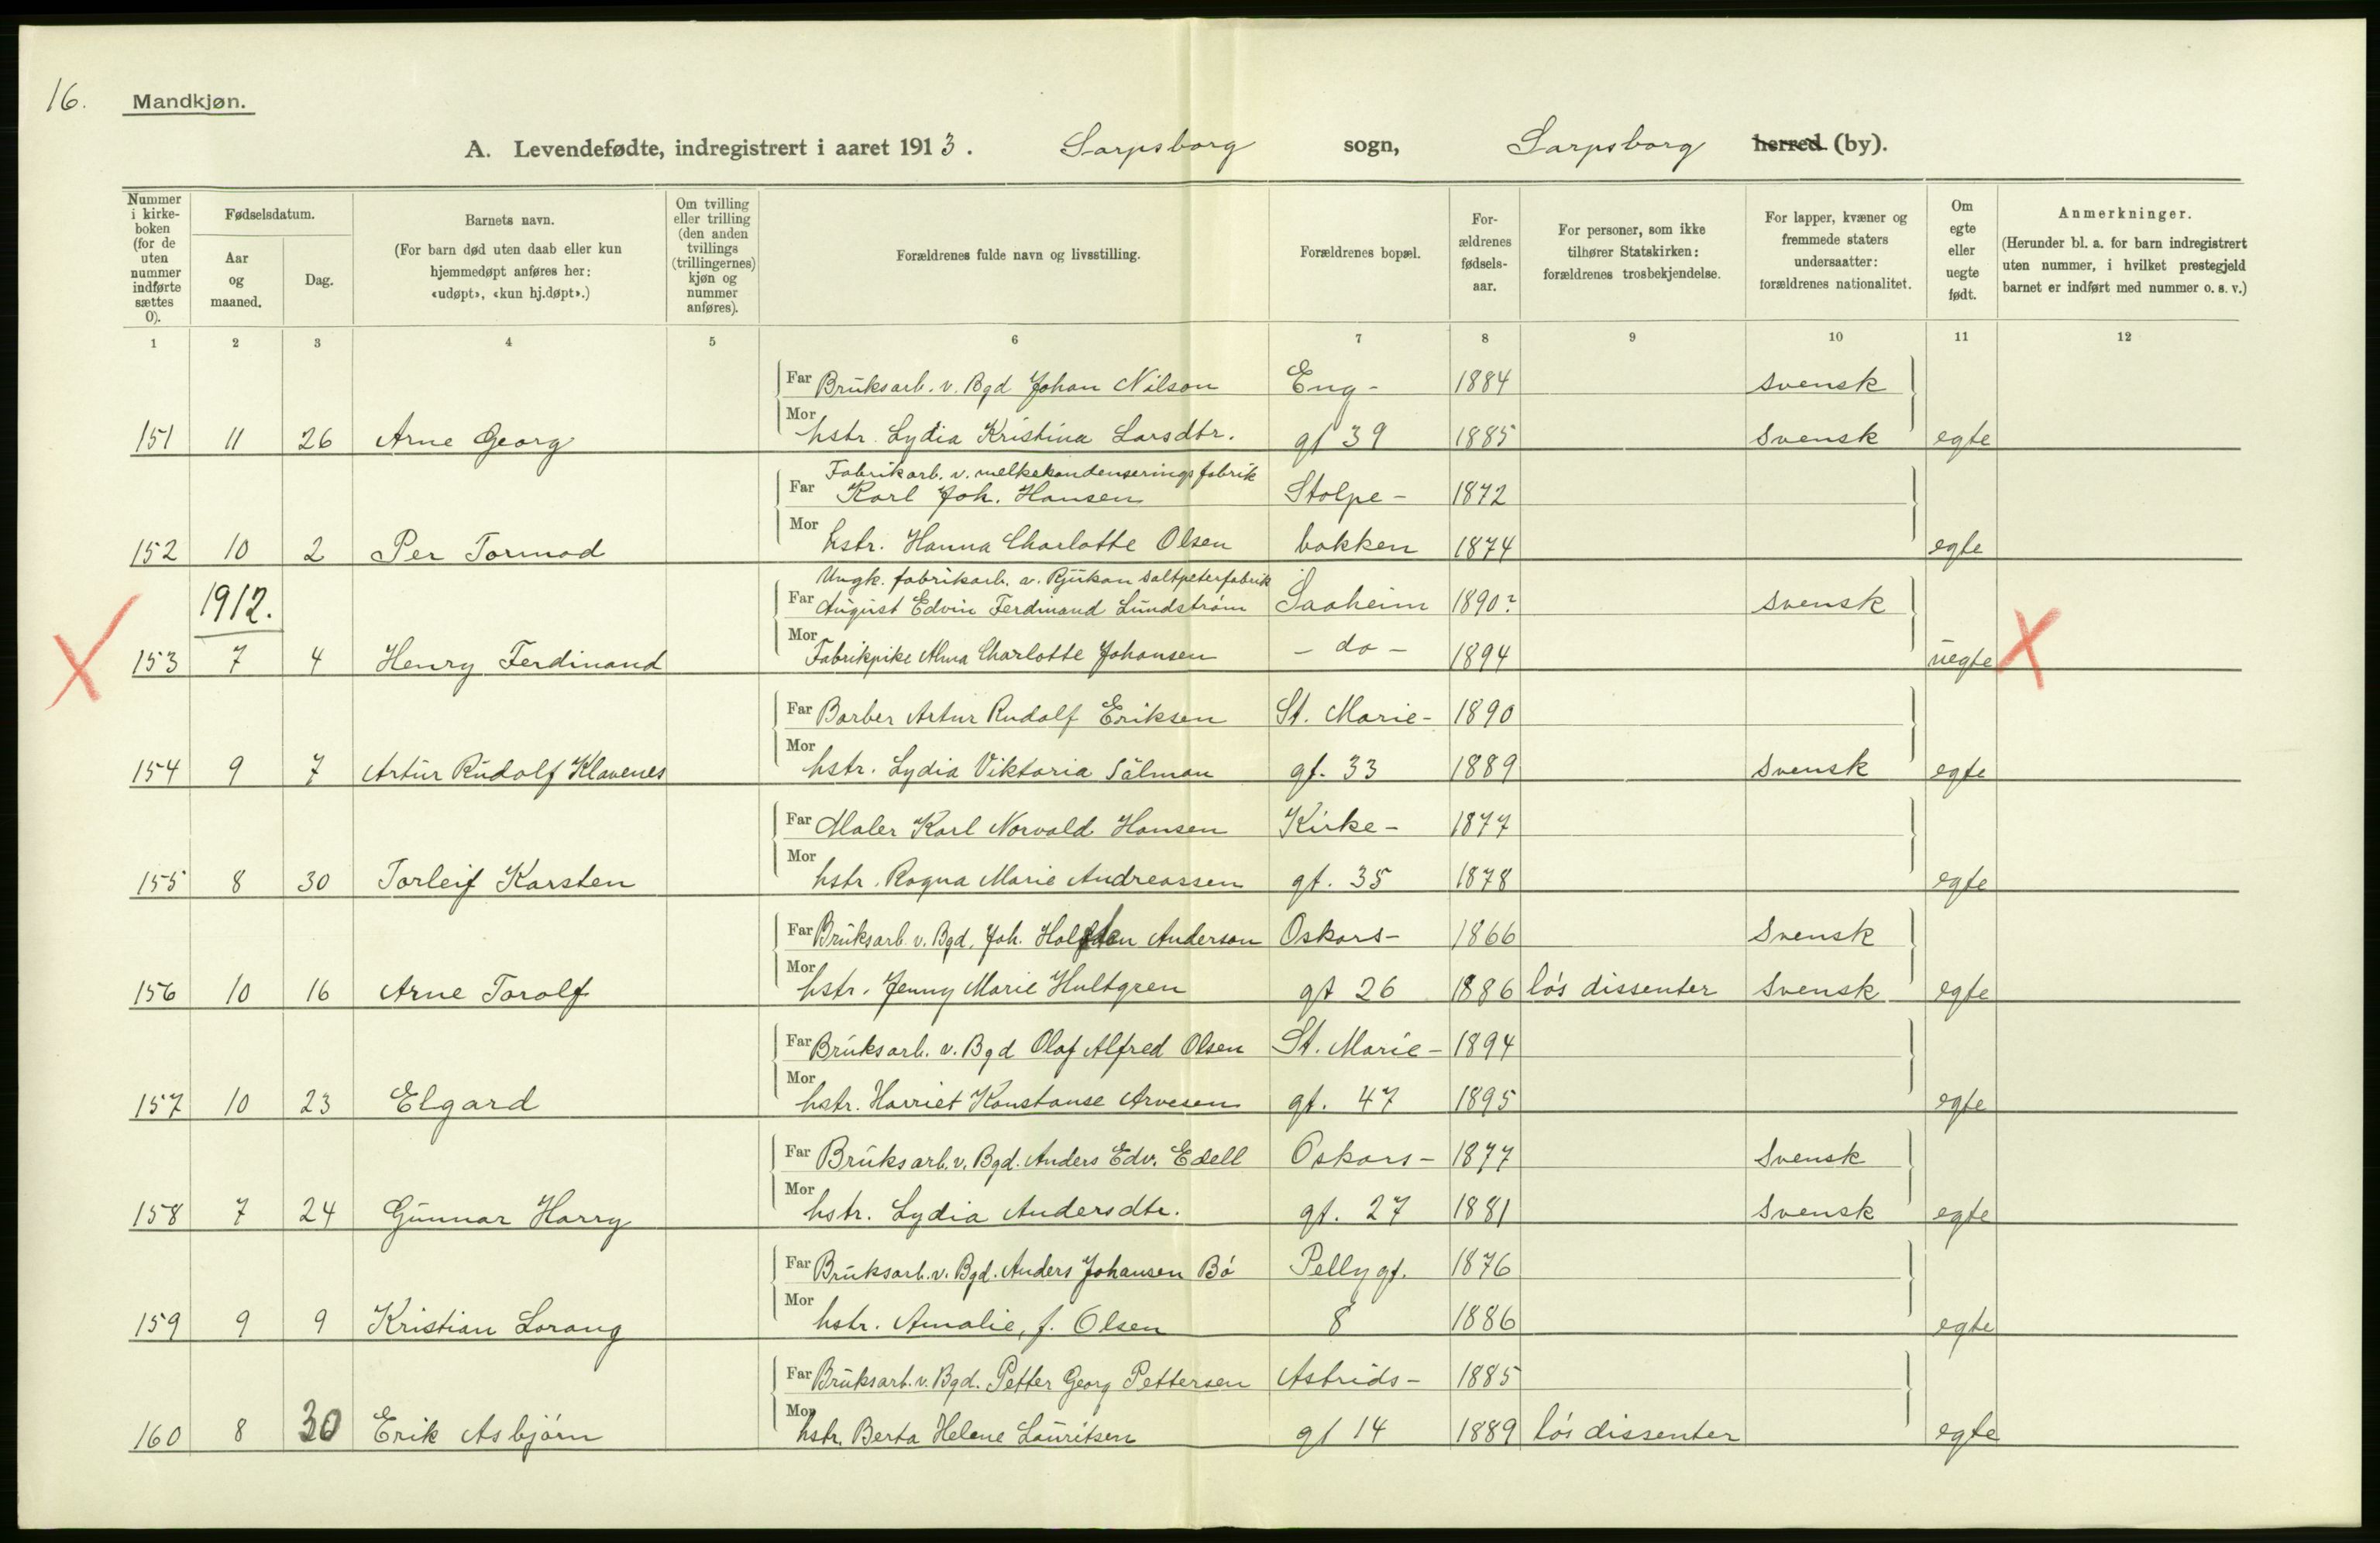 16.
Mandkjøn.
A. Levendefødte, indregistrert i aaret 1913. Sarpsborg sogn, Sarpsborg herred (by).
Nummer i kirke-boken (for de uten nummer indførte sættes 0).
Fødselsdatum.
Aar og maaned.
Dag.
Barnets navn.
(For barn død uten daab eller kun hjemmedøpt anføres her: «udøpt», «kun hj.døpt».)
Om tvilling eller trilling (den anden tvillings (trillingernes) kjøn og nummer anføres).
Forældrenes fulde navn og livsstilling.
Forældrenes bopæl.
For-ældrenes fødsels-aar.
For personer, som ikke tilhører Statskirken: forældrenes trosbekjendelse.
For lapper, kvæner og fremmede staters undersaatter: forældrenes nationalitet.
Om egte eller uegte født.
Anmerkninger.
(Herunder bl. a. for barn indregistrert uten nummer, i hvilket prestegjeld barnet er indført med nummer o. s. v.)
1 2 3 4 5 6 7 8 9 10 11 12
Far Bruksarb. v. Bgd Johan Nilson Eng- 1884 svensk
151 11 26 Arne Georg Mor hstr. Lydia Kristina Larsdtr. gt 39 1885 svensk egte
Fabrikarb. v. melkekondenseringsfabrik
Far Karl Joh. Hansen Stolpe- 1872
152 10 2 Per Tormod Mor hstr. Hanna Charlotte Olsen bakken 1874 egte
Ungk. fabrikarb. v. Rjukan saltpeterfabrik
1912. Far August Edvin Ferdinand Lundstrøm Saaheim 1890? svensk
153 7 4 Henry Ferdinand Mor Fabrikpike Alma Charlotte Johansen - do - 1894 uegte
Far Barber Artur Rudolf Eriksen St. Marie- 1890
154 9 7 Artur Rudolf Klavenes Mor hstr. Lydia Viktoria Sälman gt. 33 1889 svensk egte
Far Maler Karl Norvald Hansen Kirke- 1877
155 8 30 Torleif Karsten Mor hstr. Ragna Marie Andreassen gt. 35 1878 egte
Far Bruksarb. v. Bgd. Joh. Anderson Oskars- 1866 Svensk
156 10 16 Arne Torolf Mor hstr. Jenny Marie Hultgren gt 26 1886 løs dissenter svensk egte
Far Bruksarb. v. Bgd Olaf Alfred Olsen St. Marie- 1894
157 10 23 Elgard Mor hstr. Harriet Konstanse Arvesen gt. 47 1895 egte
Far Bruksarb. v. Bgd. Anders Edv. Edell Oskars- 1877 Svensk
158 7 24 Gunnar Harry Mor hstr. Lydia Andersdtr. gt. 27 1881 svensk egte
Far Bruksarb. v. Bgd. Anders Johansen Bø Pellygt. 1876
159 9 9 Kristian Lorang Mor hstr. Amalie, f. Olsen 8 1886 egte
Far Bruksarb. v. Bgd. Petter Georg Pettersen Astrids- 1885
160 8 30 Erik Asbjørn Mor hstr. Berta Helene Lauritsen gt 14 1889 løs dissenter egte